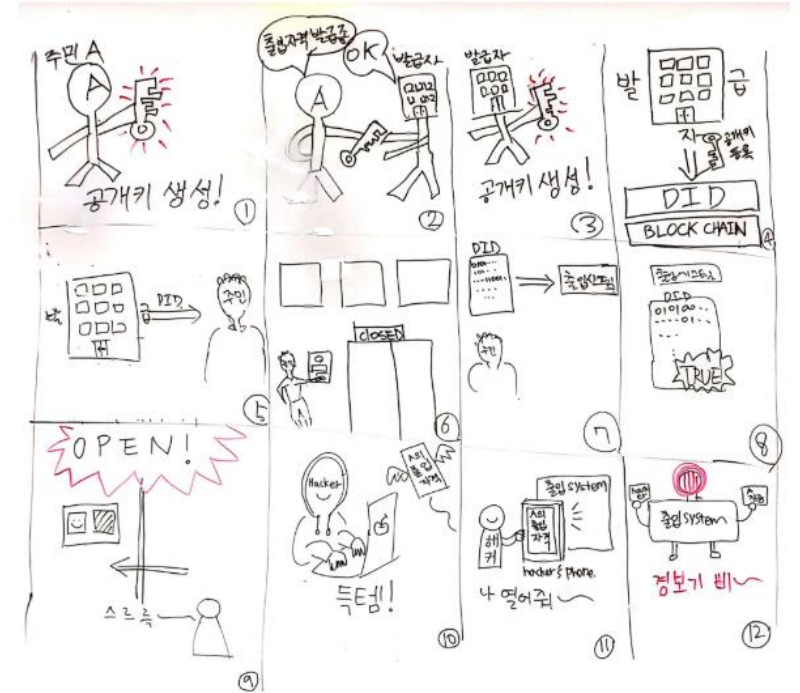 주민 A
A
공개키 생성!
①
출입자격 발급좀
OK
발급자
A
②
발급자
공개키 생성!
③
발 급
자
공개키
등록
DID
BLOCK CHAIN
④
발 급
DID
주민
⑤
CLOSED
주민
⑥
DID
출입시스템
주민
⑦
출입시스템
DID
TRUE
⑧
OPEN!
스르륵
⑨
Hacker
A의
출입
자격
득템!
⑩
출입 system
A의
출입
자격
해
커
hacker's phone.
나 열어줘~
⑪
hack
er
출입 system
경보기 삐~
⑫